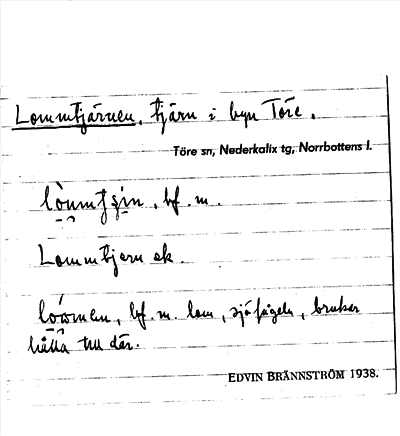 Lommtjärnen, tjärn i byn Töre.
Töre sn, Nederkalix tg, Norrbottens l.
bf. m.
Lommtjern ek.
bf. m. lom, sjöfågeln, brukar
hålla till där.
EDVIN BRÄNNSTRÖM 1938.